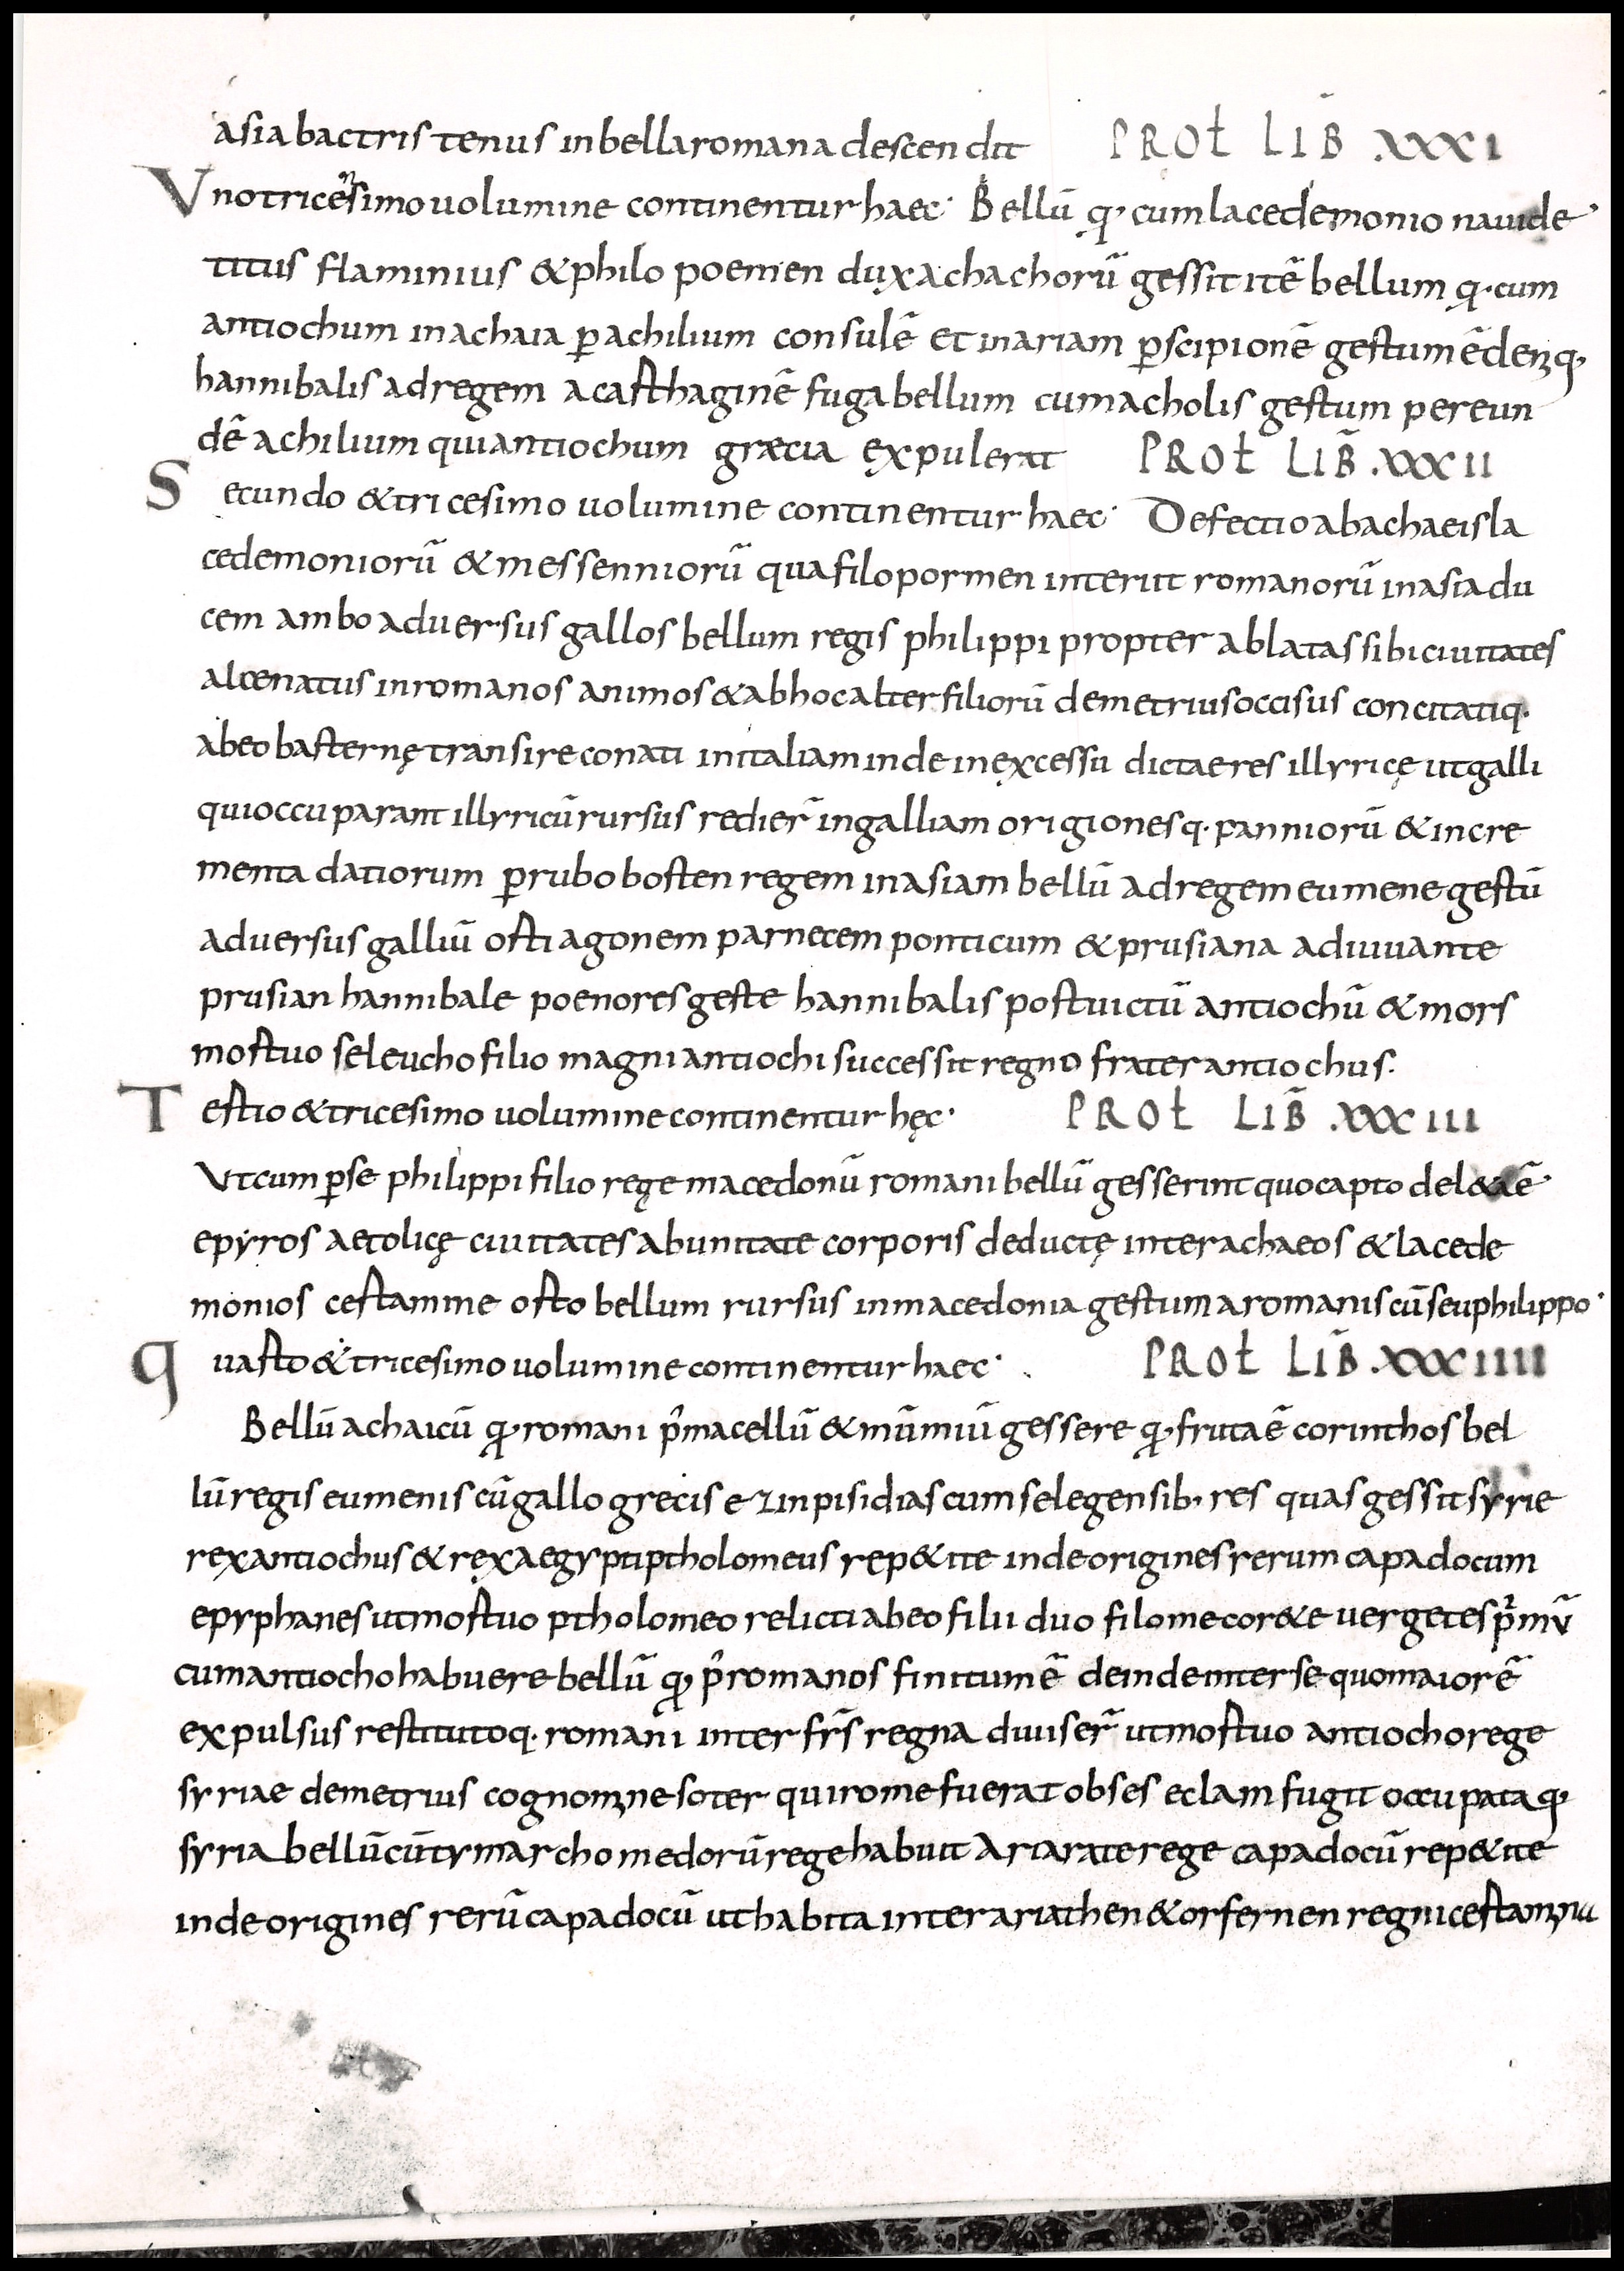 asia bactris tenus in bella romana descendit PROŁ LIB̄ .XXXI
Vnotricensimo uolumine continentur haec· Bellū q̣· cum lacedemonio nauide·
titus flaminius & philo poemen dux achachorū gessit itē bellum q̣· cum
antiochum in achaia ꝑ achilium consulē et in ariam ꝑ scipionē gestum ē demq·
hannibalis ad regem a carthaginē fuga bellum cum acholis gestum per eun
dē achilium qui antiochum græcia expulerat PROŁ LIB̄ .XXXII
Secundo & tricesimo uolumine continentur haec· Defectio ab achaeis la
cedemoniorū & messenniorū qua filopormen interiit romanorū in asia du
cem ambo aduersus gallos bellum regis philippi propter ablatas sibi ciuitates
alcenatus in romanos animos & ab hoc alter filiorū demetrius occisus concitatiq·
ab eo basternę transire conati in italiam inde in excessu dictae res illyricę ut galli
qui occuparant illyricū rursus redier̄ in galliam origionesq· panniorū & incre
menta datiorum ꝑ rubobosten regem in asiam bellū ad regem eumene gestū
aduersus galliū ortiagonem parnecem ponticum & prusiana adiuuante
prusian hannibale poenores geste hannibalis post uictū antiochū & mors
mortuo seleucho filio magni antiochi successit regno frater antiochus·
Tertio & tricesimo uolumine continentur hęc· PROŁ LIB̄ .XXXIII
Vt cum ꝑse philippi filio regę macedonū romani bellū gesserint quo capto del&a ē·
epyros aetolicę ciuitates ab unitate corporis deductę inter achaeos & lacede
monios certamine orto bellum rursus in macedonia gestum a romanis cū seuphilippo·
Quarto & tricesimo uolumine continentur haec· PROŁ LIB̄ .XXXIIII
Bellū achaicū q̣· romani p̄ macellū & mūmiū gessere q̣· fruta ē corinthos bel
lū regis eumenis cū gallo grecis et in pisidias cum selegensib; res quas gessit syrie
rex antiochus & rex aegypti ptholomeus rep&ite inde origines rerum capadocum
epyphanes ut mortuo ptholomeo relicti ab eo filii duo filomecor & euergetes p̄mū
cum antiocho habuere bellū q̣· p̄ romanos finitum ē deinde inter se quo maior ē
expulsus restitutoq· romani inter fr̄s regna diuiser̄ ut mortuo antiocho rege
syriae demetrius cognomne soter qui rome fuerat obses eclam fugit occupataq·
syria bellū cū tymarcho medorū rege habuit Ariarate rege capadocū rep&ite
inde origines rerū capadocū ut habita inter ariathen & orfernen regni certamni